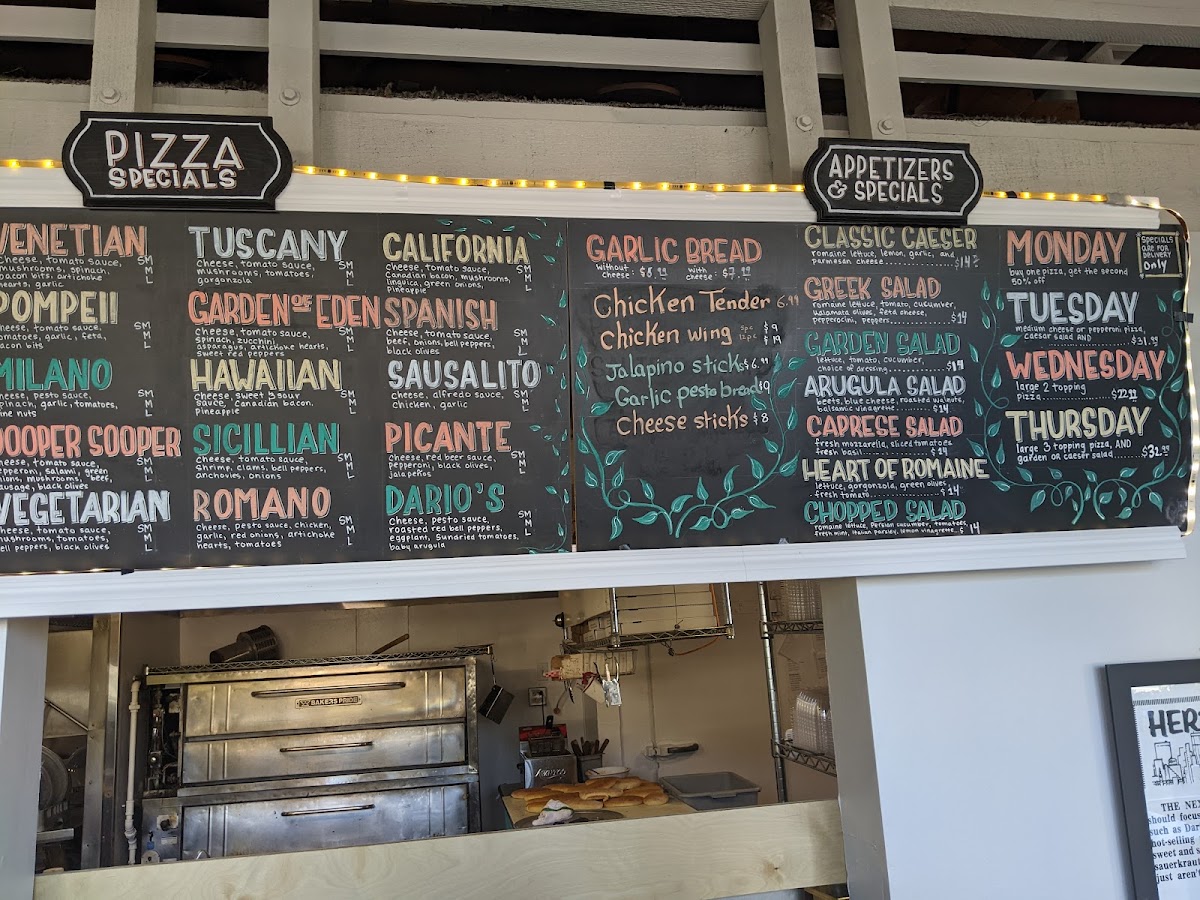 PIZZA
SPECIALS
VENETIAN
Cheese, tomato sauce,
mushrooms, spinach,
bacon bits, artichoke
hearts, garlic
SM
M
L
POMPEII
cheese, tomato sauce,
tomatoes, garlic, feta,
bacon bits
SM
M
L
MILANO
cheese, pesto sauce,
spinach, garlic, tomatoes,
pine nuts
SM
M
L
SOOPER
cheese, tomato sauce,
pepperoni, Salami, green
onions, mushrooms, beef,
sausage, black olives
SM
M
L
VEGETARIAN
cheese, tomato sauce,
mushrooms, tomatoes,
bell peppers, black olives
SM
M
L
TUSCANY
Cheese, tomato sauce,
mushrooms, tomatoes,
gorgonzola
SM
M
L
GARDEN OF EDEN
cheese, tomato sauce,
spinach, zucchini,
asparagus, artichoke hearts,
sweet red peppers
SM
M
L
HAWAIIAN
cheese, sweet & sour
sauce, Canadian bacon,
pineapple
SM
M
L
SICILLIAN
Cheese, tomato sauce,
Shrimp, clams, bell peppers,
anchovies, onions
SM
M
L
ROMANO
Cheese, pesto sauce, chicken,
garlic, red onions, artichoke
hearts, tomatoes
SM
M
L
CALIFORNIA
Cheese, tomato sauce,
Canadian bacon, mushrooms,
linguica, green onions,
Pineapple
SM
M
L
SPANISH
Cheese, tomato sauce,
beef, onions, bell peppers,
black olives
SM
M
L
SAUSALITO
Cheese, alfredo sauce,
chicken, garlic
SM
M
L
PICANTE
Cheese, red beer sauce,
pepperoni, black olives,
jalapeños
SM
M
L
DARIO'S
Cheese, pesto sauce,
roasted red bell peppers,
eggplant, Sundried tomatoes,
baby arugula
SM
M
L
APPETIZERS
& SPECIALS
GARLIC BREAD
without cheese: with cheese: $7.99
Chicken Tender 6.99
Chicken wing
$9
$19
Jalapino sticks $6.99
Garlic pesto bread
Cheese sticks $8
CLASSIC CAESER
romaine lettuce, lemon, garlic, and
parmesan cheese $14
GREEK SALAD
romaine lettuce, tomato, cucumber,
kalamata olives, feta cheese,
pepperocini, peppers $14
GARDEN SALAD
lettuce, tomato, cucumber,
choice of dressing $14
ARUGULA SALAD
beets, blue cheese, roasted walnuts,
balsamic vinagrette $14
CAPRESE SALAD
fresh mozzarella, sliced tomatoes
fresh basil $14
HEART OF ROMAINE
lettuce, gorgonzola, green olives,
fresh tomato $14
CHOPPED SALAD
romaine lettuce, Persian cucumber, tomatoes,
fresh mint, italian parsley, lemon vinagrette $14
MONDAY
buy one pizza, get the second
50% off
SPECIALS
ARE FOR
DELIVERY
ONLY
TUESDAY
medium cheese or pepperoni pizza,
caesar salad AND $31.99
WEDNESDAY
large 2 topping
pizza $22.99
THURSDAY
large 3 topping pizza, AND
garden or caesar salad $32.99
BAKERS PRIDE
HER
THE NE
should focus
such as Dar
hot-selling
sweet and s
sauerkraut
just aren't